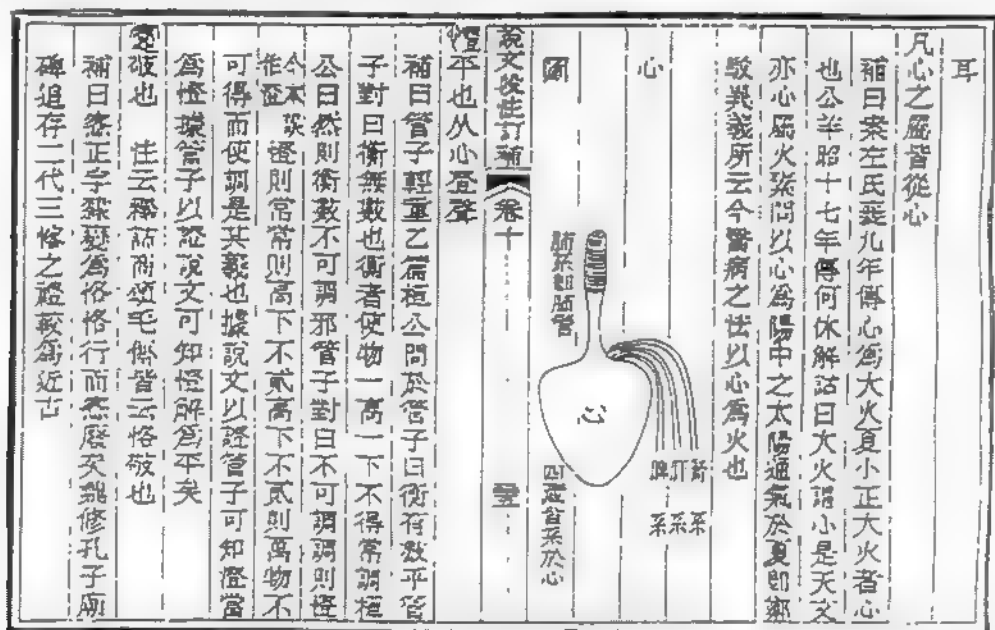 耳
凡心之屬皆從心
補曰案左氏襄九年傳心爲大火夏小正大火者心
也公羊昭十七年傳何休解詁曰大火謂心是天文
亦心屬火素問以心爲陽中之太陽通氣於夏卽鄭
駁異義所云今醫病之法以心爲火也
心
圖
肺系卽肺管
心
腎系
肝系
脾系
四臟皆系於心
說文段注訂補
卷十
憕平也从心登聲
補曰管子輕重乙篇桓公問於管子曰衡有數乎管
子對曰衡無數也衡者使物一高一下不得常調桓
公曰然則衡數不可調邪管子對曰不可調調則憕
今本誤作澄
憕則常常則高下不貳高下不貳則萬物不
可得而使調是其義也據說文以證管子可知澄當
爲憕據管子以證說文可知憕解爲平矣
敬也
注云釋詁商頌毛傳皆云恪敬也
補曰愙正字隸變爲恪恪行而愙廢矣魏修孔子廟
碑追存二代三愙之禮較爲近古